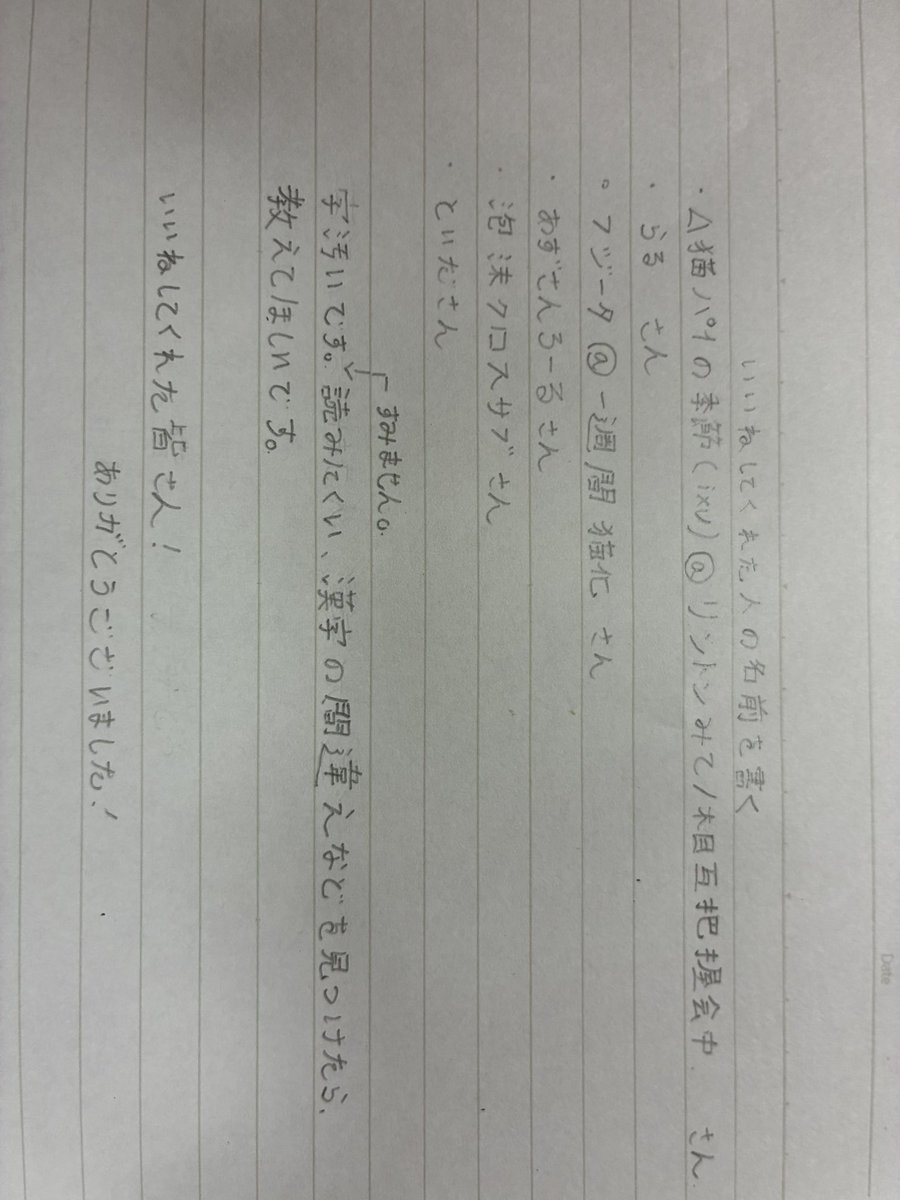 Date
いいねしてくれた人の名前を書く
・△猫パイの季節(ixu)@リットンみて/相互把握会中 さん
・らる さん
。フジータ@一週間猫化 さん
・あずさんろーるさん
・泡沫クロスサブさん
・といたさん
すみません。
字汚いです。読みにくい、漢字の間違えなどを見つけたら、
教えてほしいです。
いいねしてくれた皆さん!
ありがとうございました!